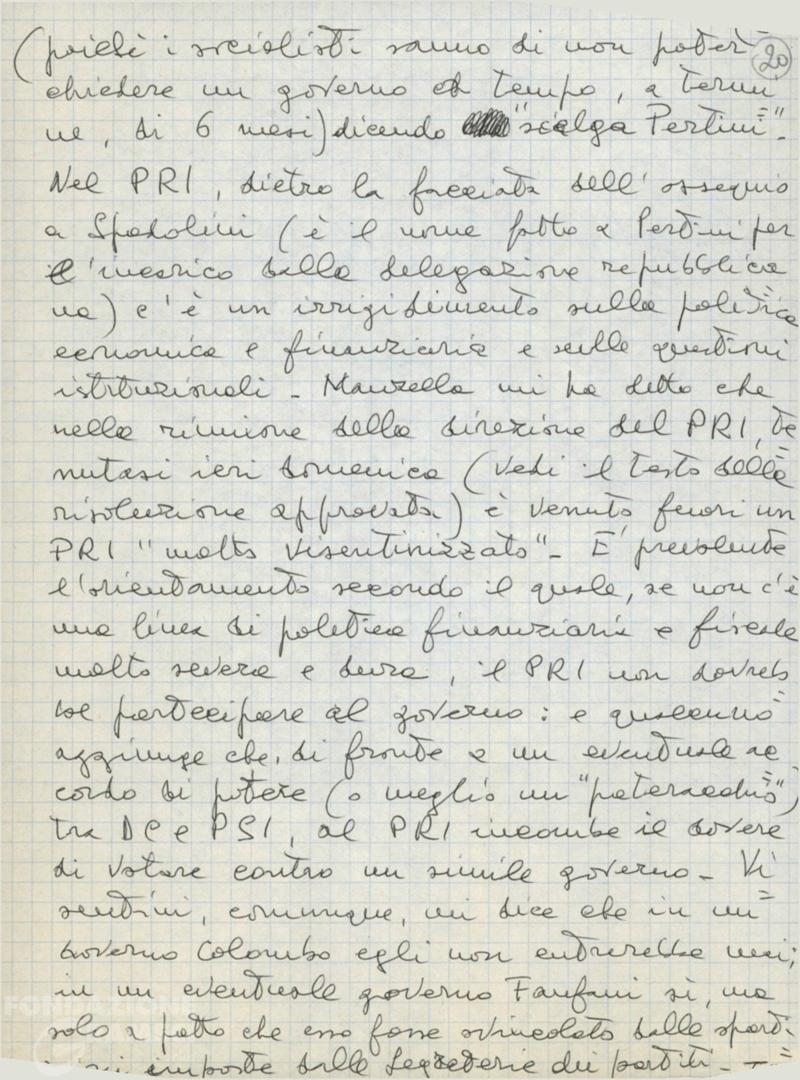 20
(poiché i socialisti sanno di non poter
chiedere un governo a tempo, a termi=
ne, di 6 mesi) dicendo "scelga Pertini".
Nel PRI, dietro la facciata dell'ossequio
a Spadolini (è il nome fatto a Pertini per
l'incarico dalla delegazione repubblica=
na) c'è un irrigidimento sulla politica
economica e finanziaria e sulle questioni
istituzionali. Manzella mi ha detto che
nella riunione della direzione del PRI, te=
nutasi ieri domenica (vedi il testo della
risoluzione approvata) è venuto fuori un
PRI "molto visentinizzato". È prevalente
l'orientamento secondo il quale, se non c'è
una linea di politica finanziaria e fiscale
molto severa e dura, il PRI non dovreb=
be partecipare al governo: e qualcuno
aggiunge che, di fronte a un eventuale ac=
cordo di potere (o meglio un "pateracchio")
tra DC e PSI, al PRI incombe il dovere
di votare contro un simile governo. Vi=
sentini, comunque, mi dice che in un
governo Colombo egli non entrerebbe mai;
in un eventuale governo Fanfani sì, ma
solo a patto che esso fosse svincolato dalle sparti=
imposte dalle Segreterie dei partiti. —